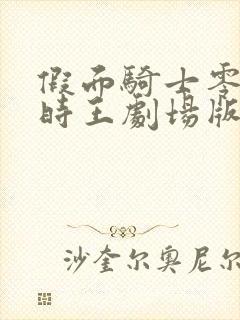 假面騎士零
時王劇場版
沙奎尔奥尼尔